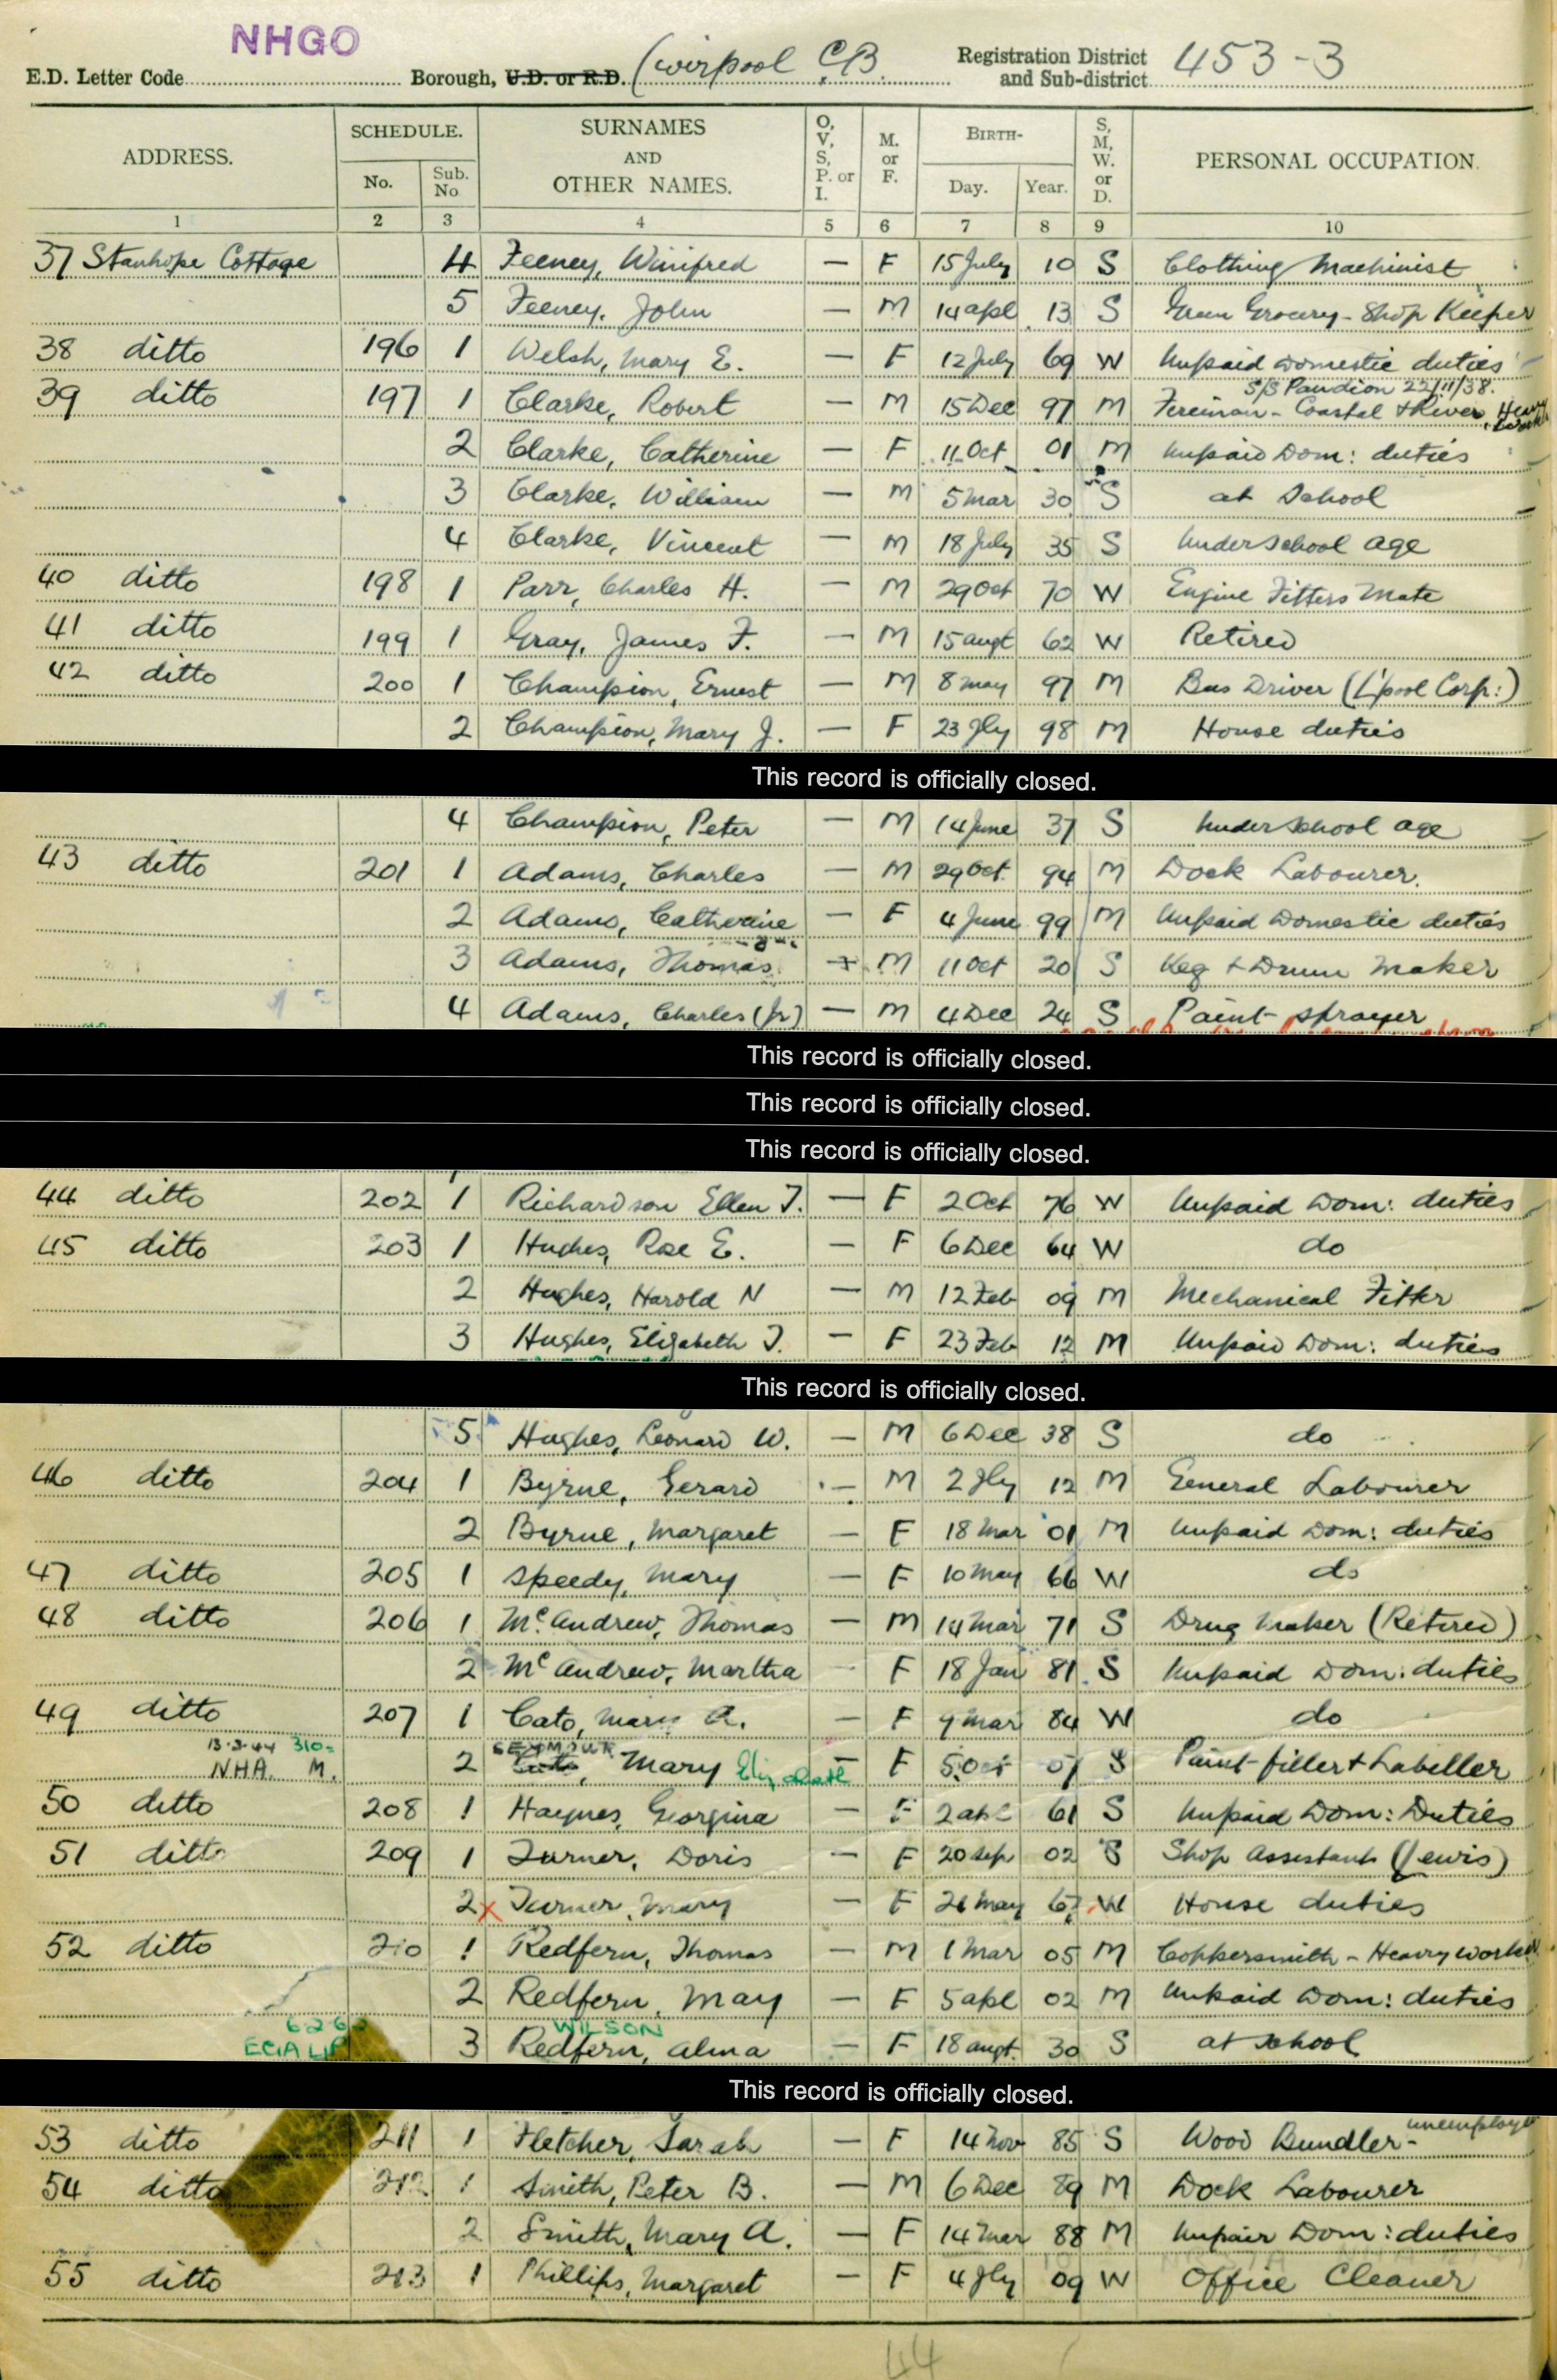 NHGO
E.D. Letter Code Borough, U.D. or R.D. Liverpool C.B. Registration District and Sub-district 453-3
ADDRESS. SCHEDULE. No. Sub. No SURNAMES AND OTHER NAMES. O, V, S, P. or I. M. or F. BIRTH- Day. Year. S, M, W. or D. PERSONAL OCCUPATION.
1 2 3 4 5 6 7 8 9 10
37 Stanhope Cottage 4 Feeney, Winifred — F 15 July 10 S Clothing Machinist
5 Feeney, John — M 14 apl 13 S Green Grocery - Shop Keeper
38 ditto 196 1 Welsh, Mary E. — F 12 July 69 W Unpaid Domestic duties
S/S Pandion 22/11/38.
39 ditto 197 1 Clarke, Robert — M 15 Dec 97 M Fireman - Coastal & River, Heavy Work
2 Clarke, Catherine — F 11 Oct 01 M Unpaid Dom: duties
3 Clarke, William — M 5 Mar 30 S at School
4 Clarke, Vincent — M 18 July 35 S Under School age
40 ditto 198 1 Parr, Charles H. — M 29 Oct 70 W Engine Fitters Mate
41 ditto 199 1 Gray, James F. — M 15 augt 62 W Retired
42 ditto 200 1 Champion, Ernest — M 8 May 97 M Bus Driver (L'pool Corp:)
2 Champion, Mary J. — F 23 Jly 98 M House duties
This record is officially closed.
4 Champion, Peter — M 14 June 37 S Under School age
43 ditto 201 1 Adams, Charles — M 29 Oct. 94 M Dock Labourer.
2 Adams, Catherine — F 4 June 99 M Unpaid Domestic duties
3 Adams, Thomas — M 11 Oct 20 S Keg & Drum Maker
4 Adams, Charles (Jr) — M 4 Dec 24 S Paint sprayer
This record is officially closed.
This record is officially closed.
This record is officially closed.
44 ditto 202 1 Richardson Ellen T. — F 2 Oct 76 W Unpaid Dom: duties
45 ditto 203 1 Hughes, Rose E. — F 6 Dec 64 W do
2 Hughes, Harold N — M 12 Feb 09 M Mechanical Fitter
3 Hughes, Elizabeth T. — F 23 Feb 12 M Unpaid Dom: duties
This record is officially closed.
5 Hughes, Leonard W. — M 6 Dec 38 S do
46 ditto 204 1 Byrne, Gerard — M 2 Jly 12 M General Labourer
2 Byrne, Margaret — F 18 Mar 01 M Unpaid Dom: duties
47 ditto 205 1 Speedy, Mary — F 10 May 66 W do
48 ditto 206 1 Mc Andrew, Thomas — M 14 Mar 71 S Drug Maker (Retired)
2 Mc Andrew, Martha — F 18 Jan 81 S Unpaid Dom: duties
49 ditto 207 1 Cato, Mary A. — F 9 Mar 84 W do
13.3.44 310= SEYMOUR
NHA. M. 2 Cato, Mary Elizabeth — F 5 Oct 07 S Paint-filler & Labeller
50 ditto 208 1 Haynes, Georgina — F 2 apl 61 S Unpaid Dom: Duties
51 ditto 209 1 Turner, Doris — F 20 Sep 02 S Shop Assistant (Lewis)
2 x Turner, Mary — F 26 May 67 W House duties
52 ditto 210 1 Redfern, Thomas — M 1 Mar 05 M Coppersmith - Heavy worker
2 Redfern, May — F 5 apl 02 M Unpaid Dom: duties
WILSON
3 Redfern, Alma — F 18 augt. 30 S at School
This record is officially closed.
53 ditto 211 1 Fletcher, Sarah — F 14 Nov 85 S Wood Bundler - unemployed
54 ditto 212 1 Smith, Peter B. — M 6 Dec 89 M Dock Labourer
2 Smith, Mary A. — F 14 Mar 88 M Unpaid Dom: duties
55 ditto 213 1 Phillips, Margaret — F 4 Jly 09 W Office Cleaner
44